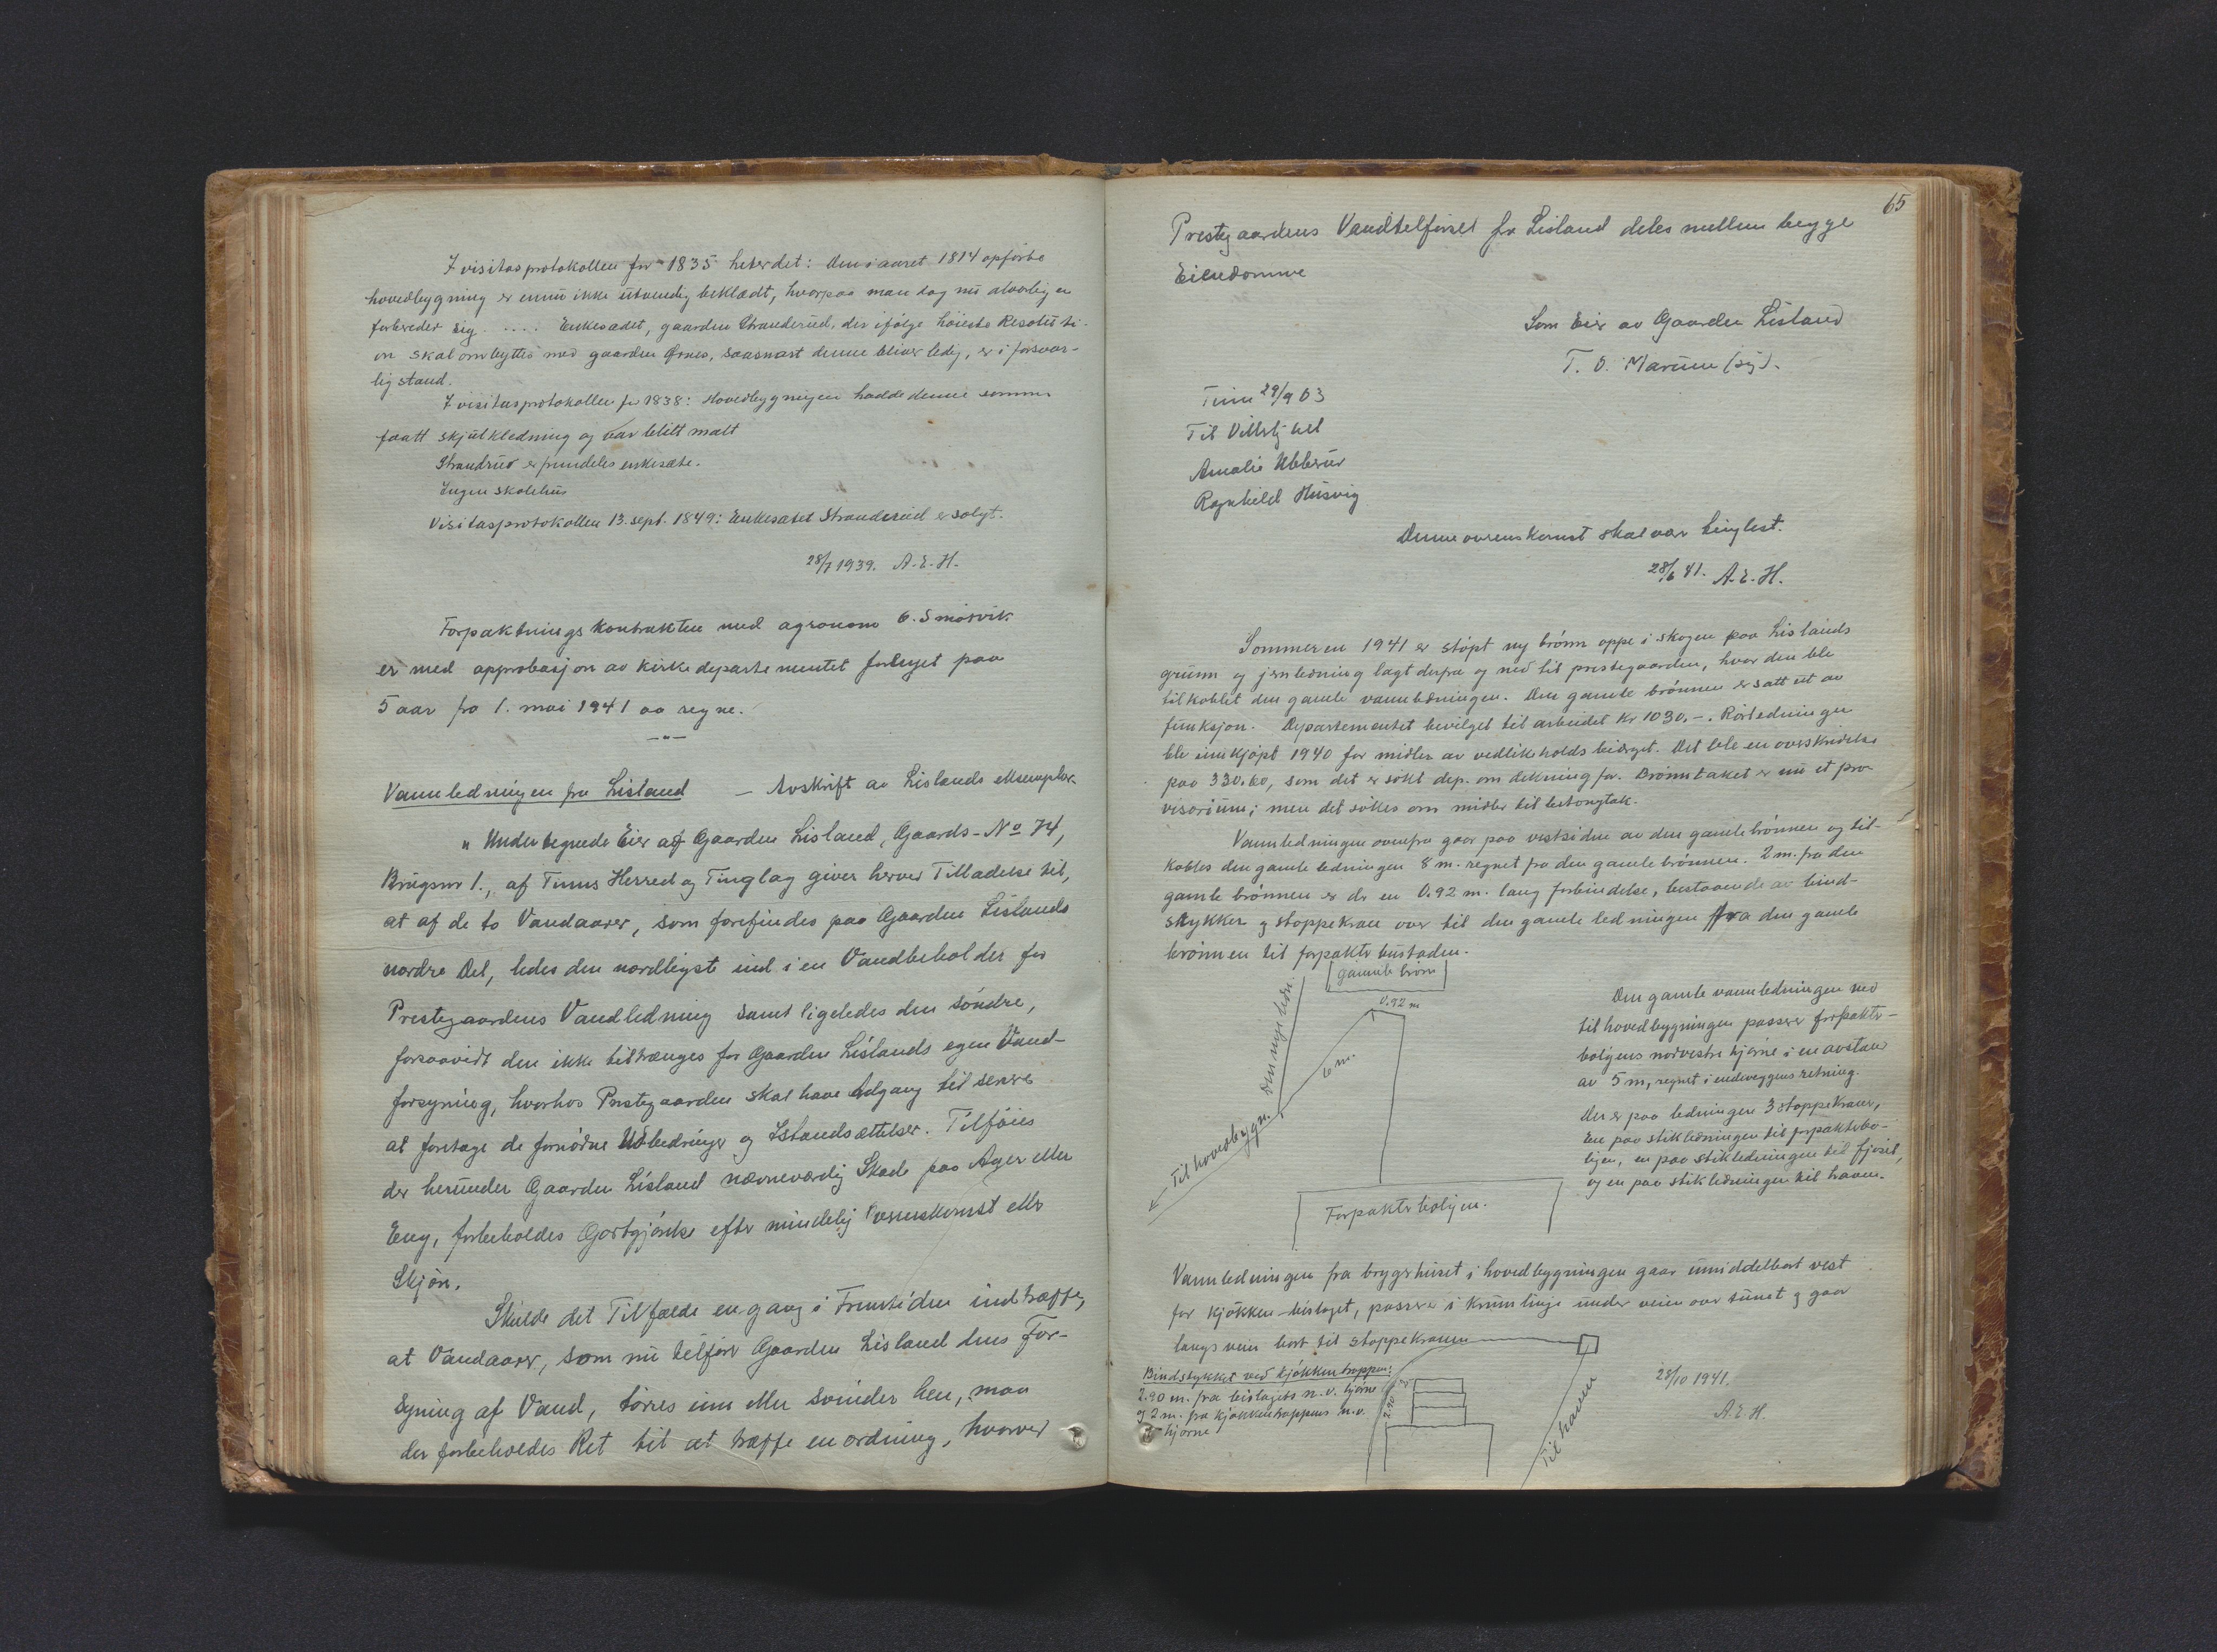 I visitasprotokollen for 1835 heter det: Den i aaret 1814 opførte
hovedbygning er ennu ikke utvendig beklædt, hvorpaa man dog nu alvorlig
forbereder sig. .... Enkesædet, gaarden Stranderud, der ifølge höieste Resoluti-
on skal ombyttes med gaarden Ørnes, saasnart denne bliver ledig, er i forsvar-
lig stand.
I visitasprotokollen for 1838: Hovedbygningen hadde denne sommer
faatt skjulkledning og var blitt malt
Strandrud er fremdeles enkesæte.
Ingen skolehus
Visitasprotokollen 13. sept. 1849: Enkesætet Stranderud er solgt.
28/7 1939. A.E.H.
Forpaktningskontrakten med agronom O. Smørvik
er med approbasjon av kirkedepartementet forlenget paa
5 aar fra 1. mai 1941 aa regne.
—"—
Vannledningen fra Lisland — Avskrift av Lislands eksemplar
" Undertegnede Eier af Gaarden Lisland, Gaards-No 74,
Brugsnr 1., af Tinns Herred og Tinglag giver herved Tilladelse til,
at af de to Vandaarer, som forefindes paa Gaarden Lislands
nordre Del, ledes den nordligste ind i en Vandbeholder for
Prestegaardens Vandledning samt ligeledes den söndre,
forsaavidt den ikke tiltrænges for Gaarden Lislands egen Vand-
forsyning, hvorhos Prestegaarden skal have Adgang til senere
at foretage de fornödne Udbedringer og Istandsættelser. Tilföies
der herunder Gaarden Lisland nævneværdig Skade paa Ager eller
Eng, forbeholdes Godtgjörelse efter mindelig Overenskomst eller
Skjön.
Skulde det Tilfælde en gang i Fremtiden indtræffe,
at Vandaarer, som nu tilförer Gaarden Lisland dens For-
syning af Vand, törres inn eller svinder hen, maa
der forbeholdes Ret til at træffe en ordning, hvorved
65
Prestegaardens Vandtilförsel fra Lisland deles mellem begge
Eiendomme
Som Eier av Gaarden Lisland
T. O. Marum (sg).
Tinn 29/9 03
Til Vitterlighed
Amalie Ubberud
Ragnhild Husvig
Denne overenskomst skal være tinglest.
28/6 41. A.E.H.
Sommeren 1941 er støpt ny brönn oppe i skogen paa Lislands
grunn og jernledning lagt derfra og ned til prestegaarden, hvor den ble
tilkoblet den gamle vannledningen. Den gamle brönnen er satt ut av
funksjon. Departementet bevilget til arbeidet kr 1030.-. Rörledningen
ble innkjöpt 1940 for midler av vedlikeholdsbidraget. Det ble en overskridelse
paa 330.60, som det er sökt dep. om dekning for. Brönntaket er nu et pro-
visorium; men det sökes om midler til betongtak.
Vannledningen ovenfra gaar paa vestsiden av den gamle brönnen og til-
kobles den gamle ledningen 8 m. regnet fra den gamle brönnen. 2 m. fra den
gamle brönnen er der en 0.92 m. lang forbindelse, bestaaende av bind-
stykker og stoppekran over til den gamle ledningen fra den gamle
brönnen til forpakterbustaden.
gamle brönn
0.92 m
Den nye ledn.
6 m.
Til hovedbygn.
Forpakterboligen.
Den gamle vannledningen ned
til hovedbygningen passerer forpakter-
boligens nordvestre hjörne i en avstand
av 5 m, regnet i endeveggens retning.
Der er paa ledningen 3 stoppekraner,
En paa stikledningen til forpakterbo-
ligen, en paa stikledningen til fjöset,
og en paa stikledningen til haven.
Vannledningen fra bryggehuset i hovedbygningen gaar umiddelbart vest
for kjökken-bislaget, passerer i krum linje under veien over tunet og gaar
langs veien bort til stoppekranen
Bindstykket ved kjökkentrappen:
2.90 m. fra bislagets n.v. hjörne
og 2 m. fra kjökkentrappens n.v.
hjörne
2.90
Til haven
28/10 1941.
A.E.H.